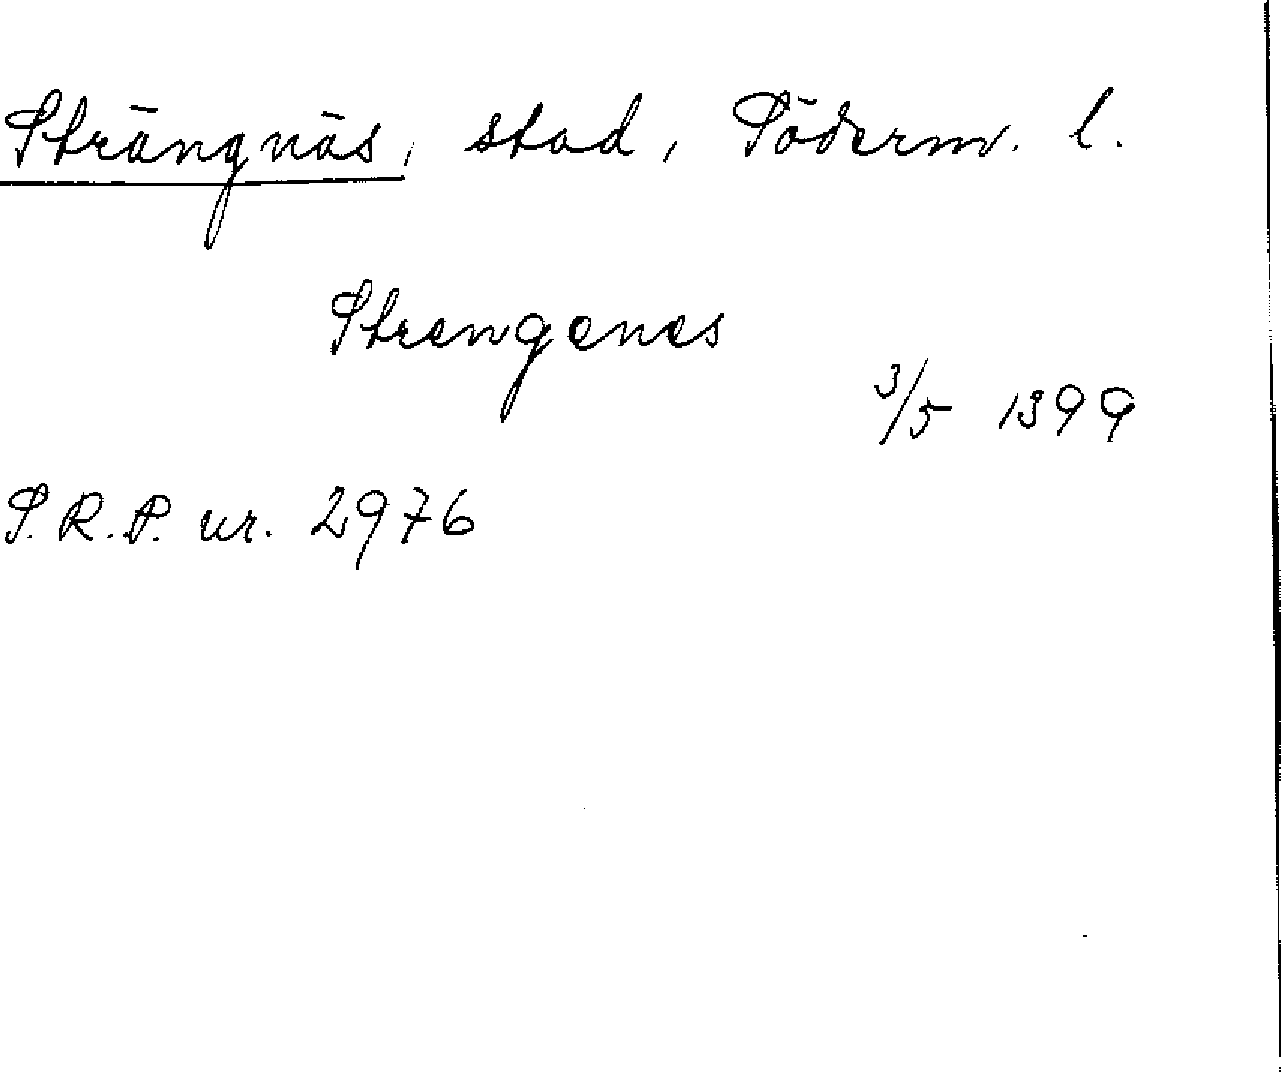 Strängnäs, stad, Söderm. l.
Strengenes
3/5 1399
S.R.P. nr. 2976